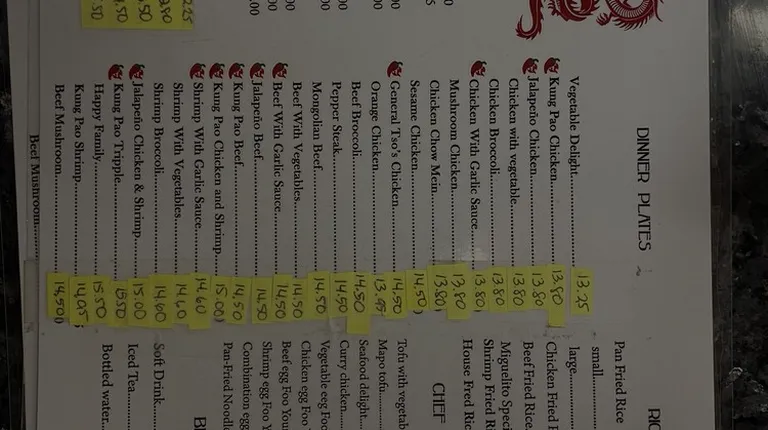 DINNER PLATES
Vegetable Delight 13.25
Kung Pao Chicken 13.80
Jalapeño Chicken 13.80
Chicken with vegetable 13.80
Chicken Broccoli 13.80
Chicken With Garlic Sauce 13.80
Mushroom Chicken 13.80
Chicken Chow Mein 13.80
Sesame Chicken 14.50
General Tso's Chicken 14.50
Orange Chicken 13.95
Beef Broccoli 14.50
Pepper Steak 14.50
Mongolian Beef 14.50
Beef With Vegetables 14.50
Beef With Garlic Sauce 14.50
Jalapeño Beef 14.50
Kung Pao Beef 14.50
Kung Pao Chicken and Shrimp 15.00
Shrimp With Garlic Sauce 14.60
Shrimp With Vegetables 14.60
Shrimp Broccoli 14.60
Jalapeño Chicken & Shrimp 15.00
Kung Pao Tripple 15.50
Happy Family 15.50
Kung Pao Shrimp
Beef Mushroom 14.50
Beef Mushroom
Pan Fried Rice
small
large
Chicken Fried
Beef Fried Rice
Miguelito Speci
Shrimp Fried R
House Fred Ric
CHEF
Tofu with vegetab
Mapo tofu
Seafood delight
Curry chicken
Vegetable egg Foo
Chicken egg Foo
Beef egg Foo You
Shrimp egg Foo Y
Combination egg
Pan-Fried Noodl
Soft Drink
Iced Tea
Bottled water